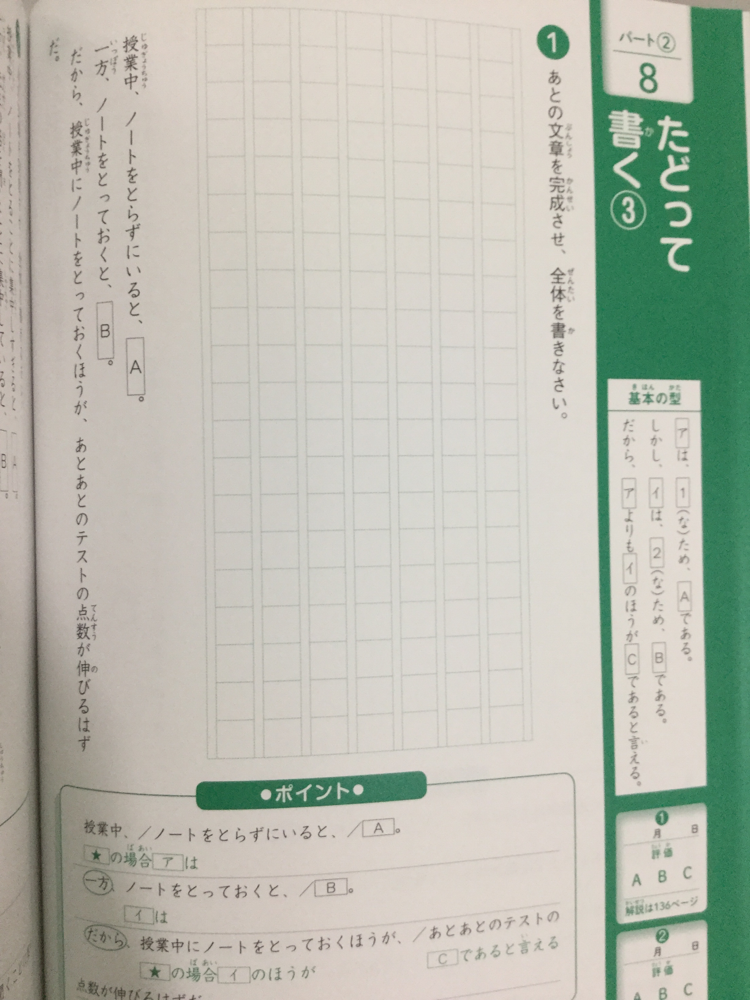 パート②
8
たどって
書く③
基本の型
アは、1(な)ため、Aである。
しかし、イは、2(な)ため、Bである。
だから、アよりもイのほうがCであると言える。
❶
月 日
評価
A B C
解説は136ページ
❷
月 日
評価
A B C
1 あとの文章を完成させ、全体を書きなさい。
授業中、ノートをとらずにいると、A。
一方、ノートをとっておくと、B。
だから、授業中にノートをとっておくほうが、あとあとのテストの点数が伸びるはず
だ。
●ポイント●
授業中、／ノートをとらずにいると、／A。
★の場合アは
一方、ノートをとっておくと、／B。
イは
だから、授業中にノートをとっておくほうが、／あとあとのテストの
★の場合イのほうが Cであると言える
点数が伸びるはずだ。